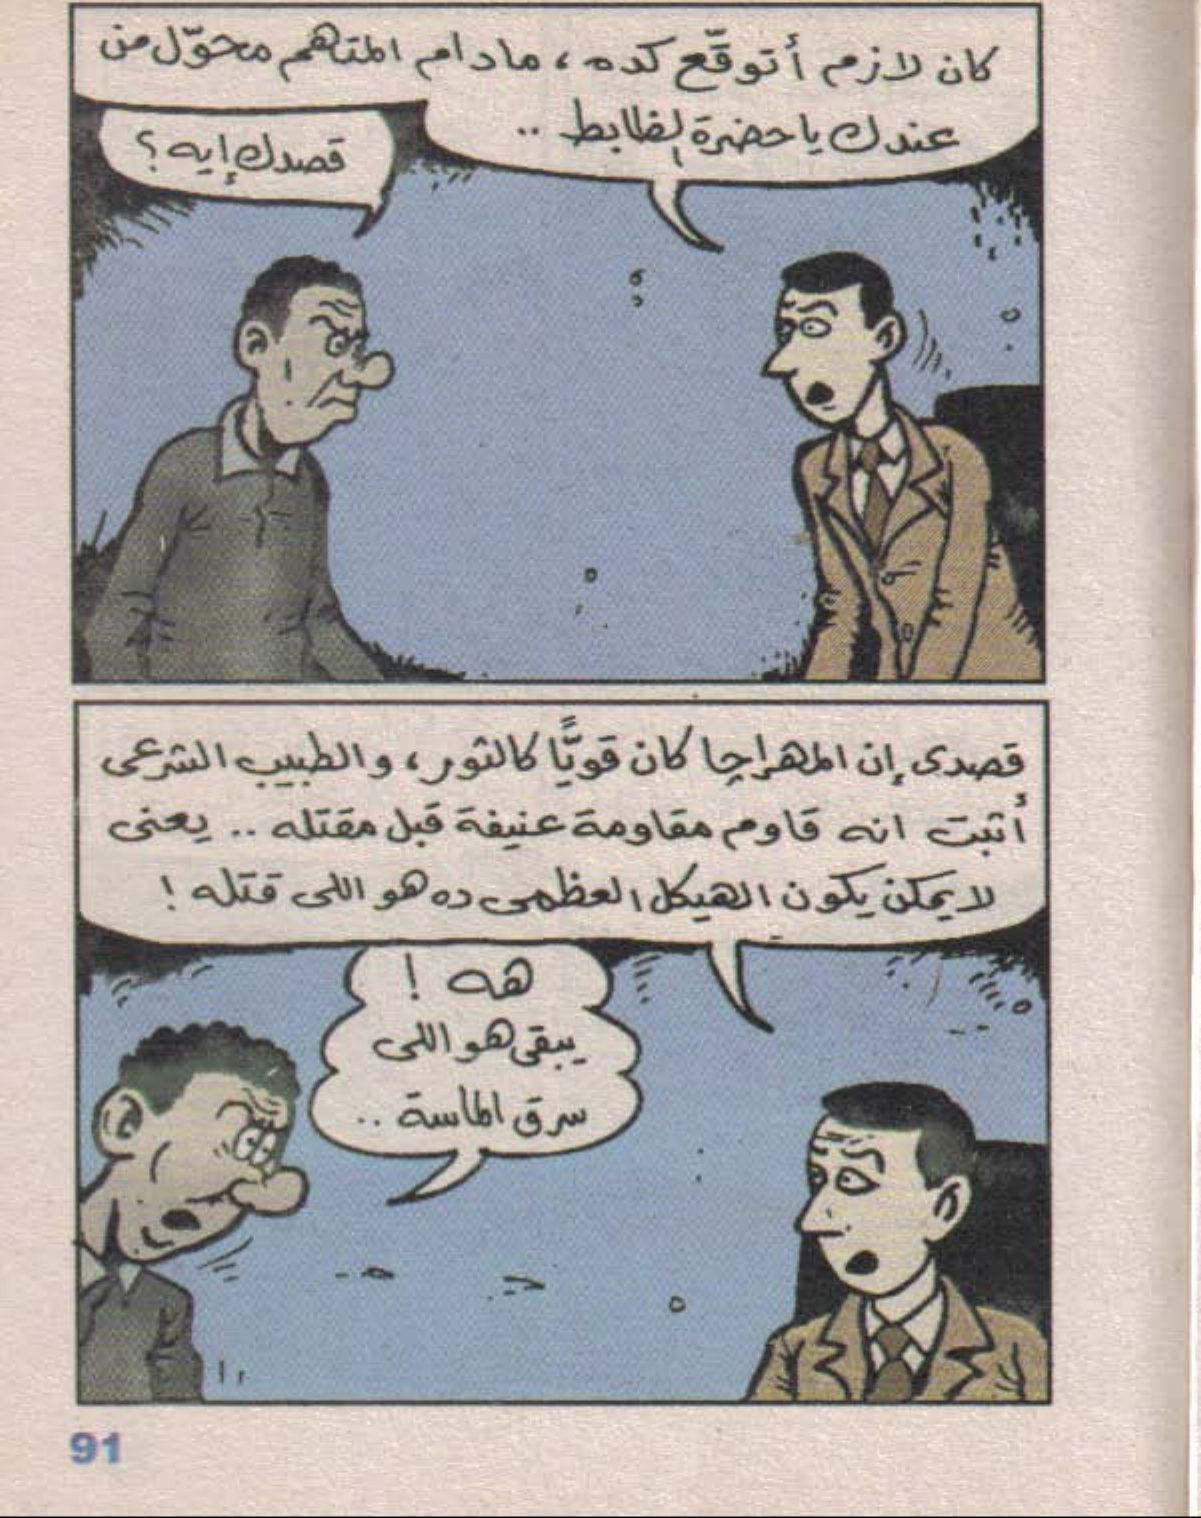 كان لازم أتوقّع كده ، مادام المتهم محوّل من
عندك يا حضرة الظابط ..
قصدك إيه ؟
قصدى إن المهراجا كان قويًّا كالثور ، والطبيب الشرعى
أثبت انه قاوم مقاومة عنيفة قبل مقتله .. يعنى
لا يمكن يكون الهيكل العظمى ده هو اللى قتله !
هه !
يبقى هو اللى
سرق الماسة ..
91